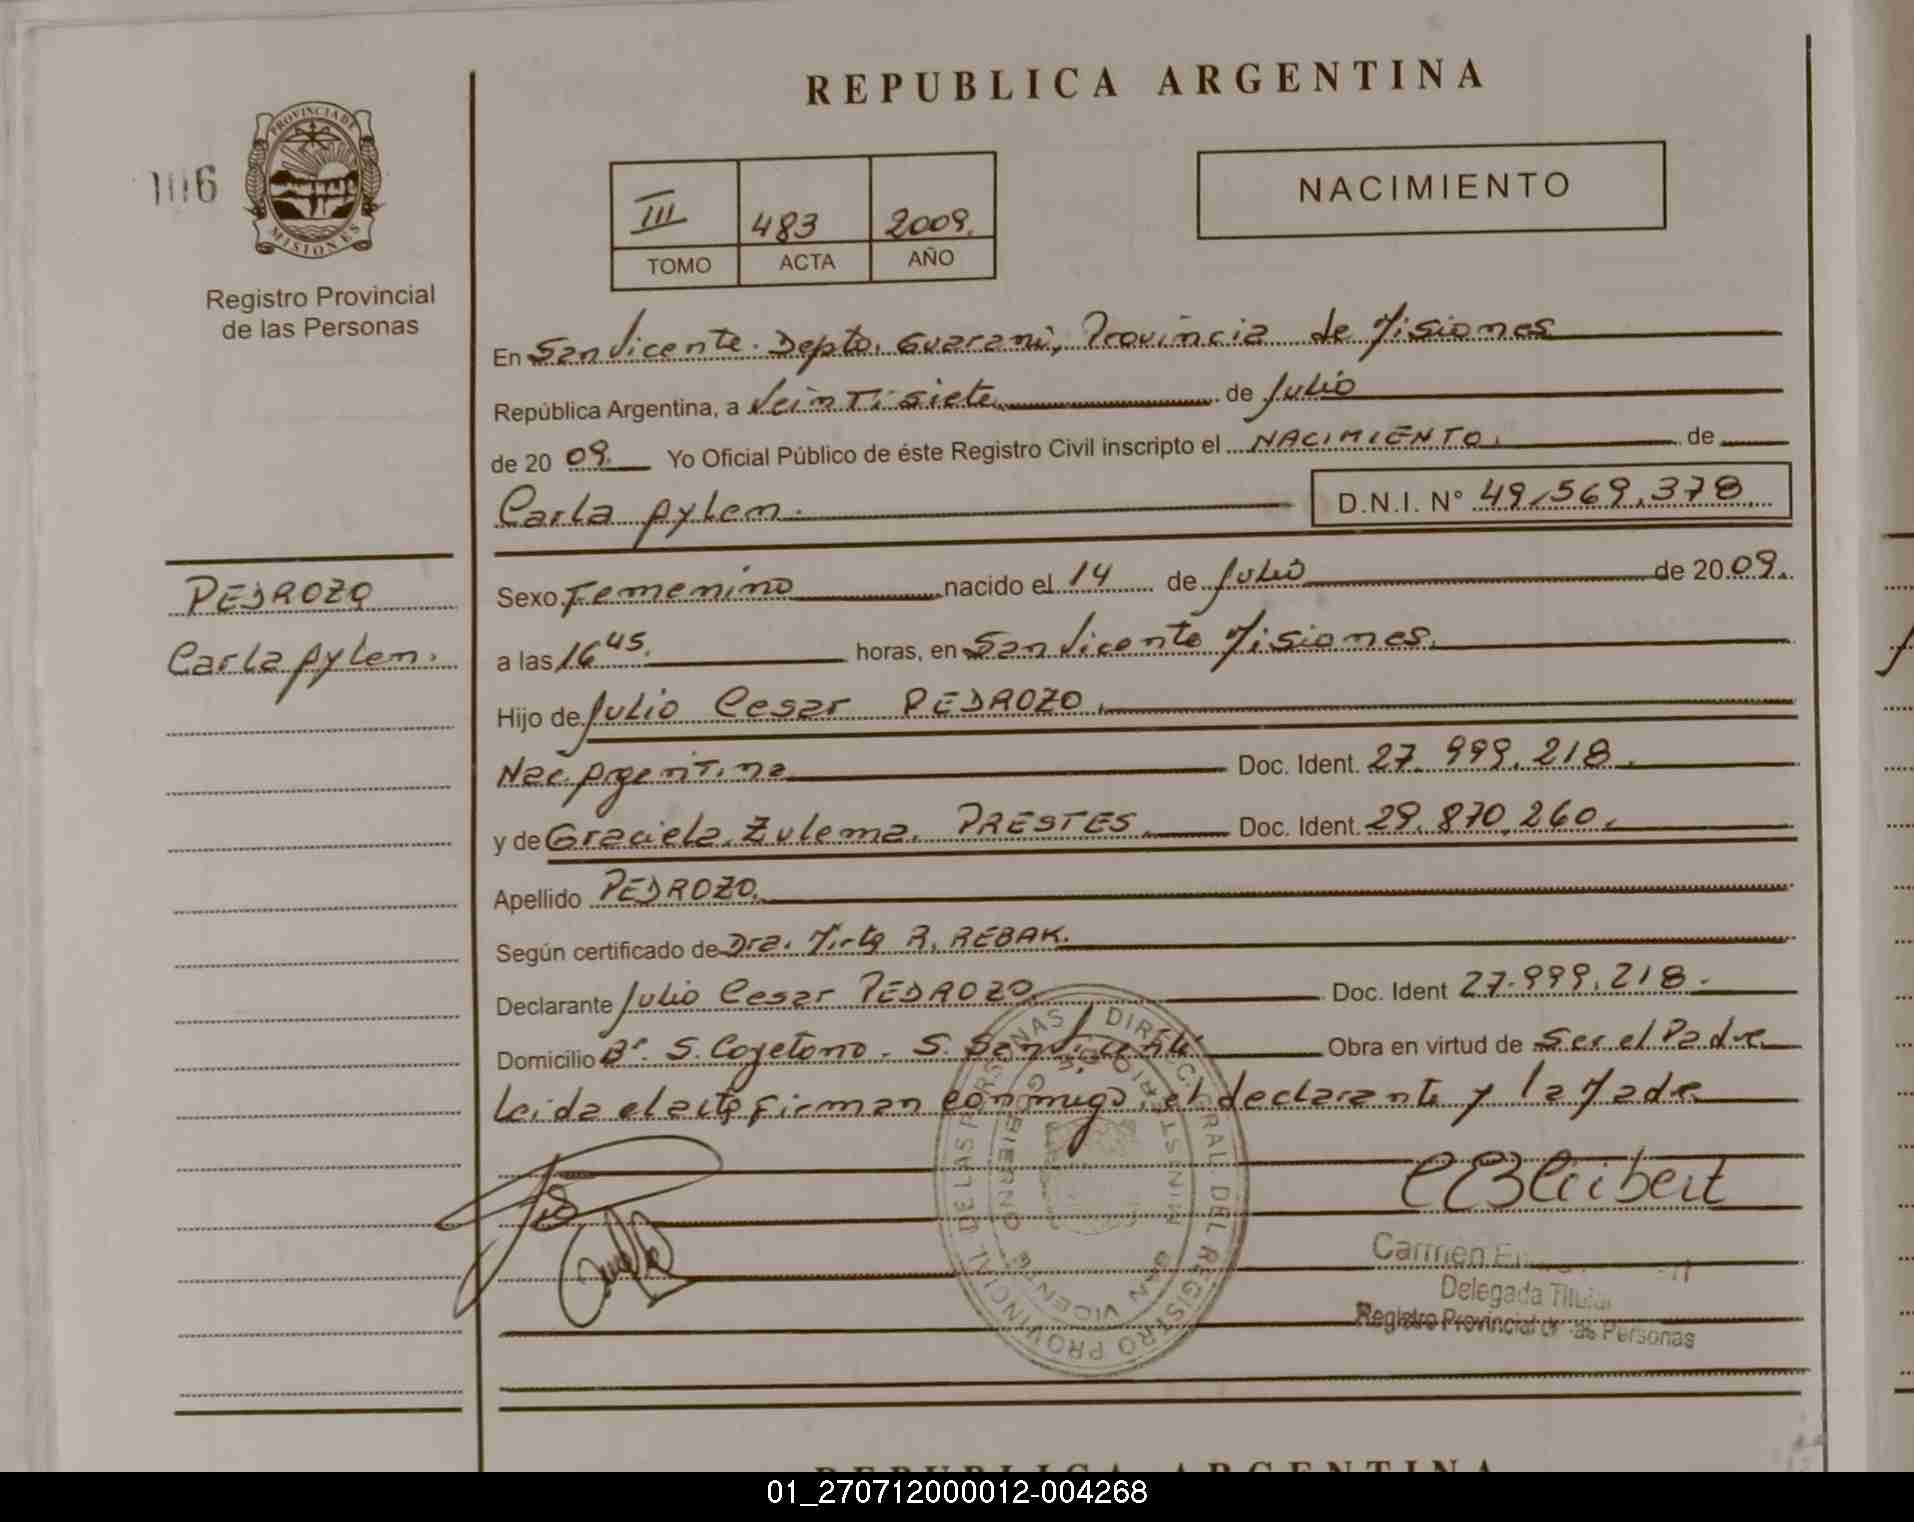 REPUBLICA ARGENTINA
106
PROVINCIA DE MISIONES
Registro Provincial
de las Personas
III 483 2009.
TOMO ACTA AÑO
NACIMIENTO
En San Vicente. Depto. Guarani, Provincia de Misiones
República Argentina, a Veintisiete de Julio
de 2009. Yo Oficial Público de éste Registro Civil inscripto el NACIMIENTO. de
Carla Aylen. D.N.I. N° 49.569.378
PEDROZO
Carla Aylen.
Sexo Femenino nacido el 14 de Julio de 2009.
a las 16 45. horas, en San Vicente Misiones.
Hijo de Julio Cesar PEDROZO.
Nac. Argentina Doc. Ident. 27.999.218.
y de Graciela Zulema PRESTES. Doc. Ident. 29.870.260.
Apellido PEDROZO.
Según certificado de Dra. Mirta R. REBAK.
Declarante Julio Cesar PEDROZO Doc. Ident 27.999.218.
Domicilio B° S. Cayetano - S. San Vicente Obra en virtud de Ser el Padre
Leida el acta firman conmigo, el declarante y la Madre
DIREC. GRAL. DEL REGISTRO PROVINCIAL DE LAS PERSONAS
MINISTERIO DE GOBIERNO
SAN VICENTE
Carmen
Delegada Titular
Registro Provincial de las Personas
REPUBLICA ARGENTINA
01_270712000012-004268